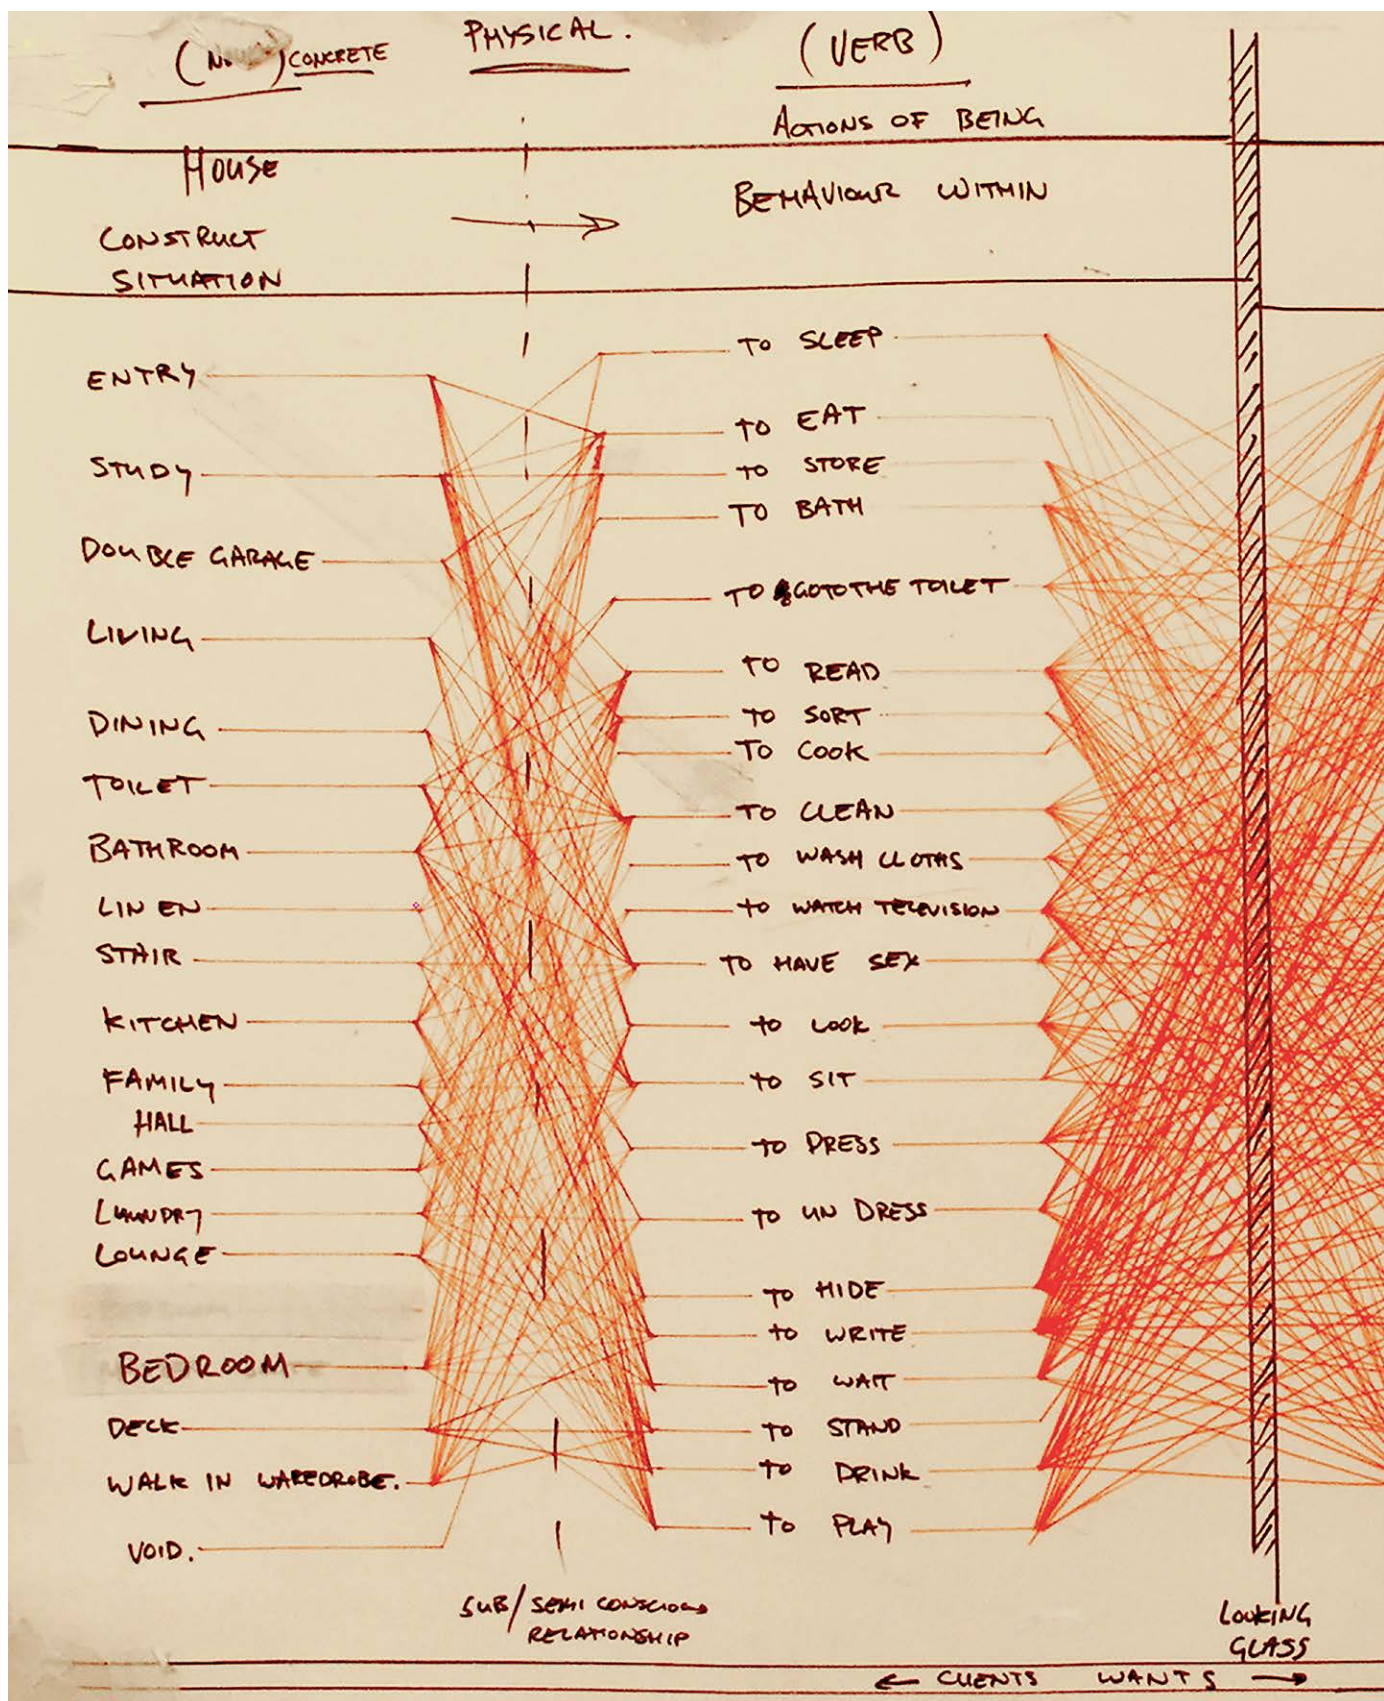 CONCRETE
PHYSICAL.
(VERB)
ACTIONS OF BEING
HOUSE
CONSTRUCT
SITUATION
BEHAVIOUR WITHIN
ENTRY
STUDY
DOUBLE GARAGE
LIVING
DINING
TOILET
BATHROOM
LINEN
STAIR
KITCHEN
FAMILY
HALL
GAMES
LAUNDRY
LOUNGE
BEDROOM
DECK
WALK IN WAREDROBE.
VOID.
TO SLEEP
TO EAT
TO STORE
TO BATH
TO GO TO THE TOILET
TO READ
TO SORT
TO COOK
TO CLEAN
TO WASH CLOTHS
TO WATCH TELEVISION
TO HAVE SEX
TO LOOK
TO SIT
TO DRESS
TO UN DRESS
TO HIDE
TO WRITE
TO WAIT
TO STAND
TO DRINK
TO PLAY
SUB/SEMI CONSCIOUS
RELATIONSHIP
LOOKING
GLASS
← CLIENTS WANTS →